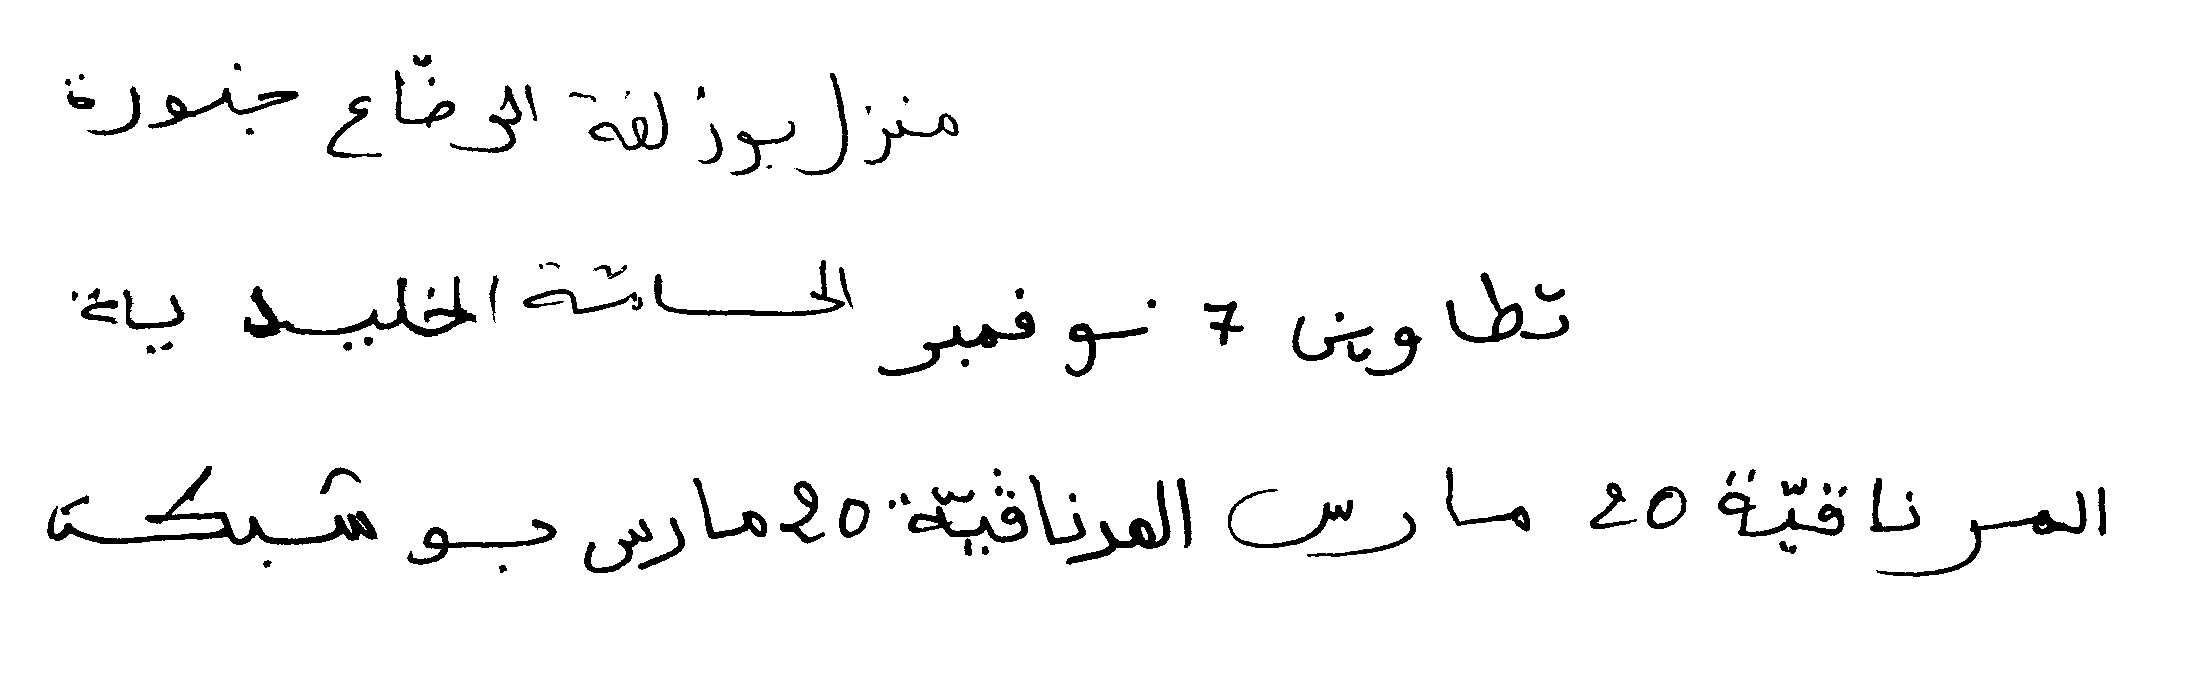 منزل بوزلفة الرضّاع جنورة
تطاوين 7 نوفمبر الحسانة الخليدية
المرناقيّة 20 مارس المرناقيّة 20 مارس بوشبكة